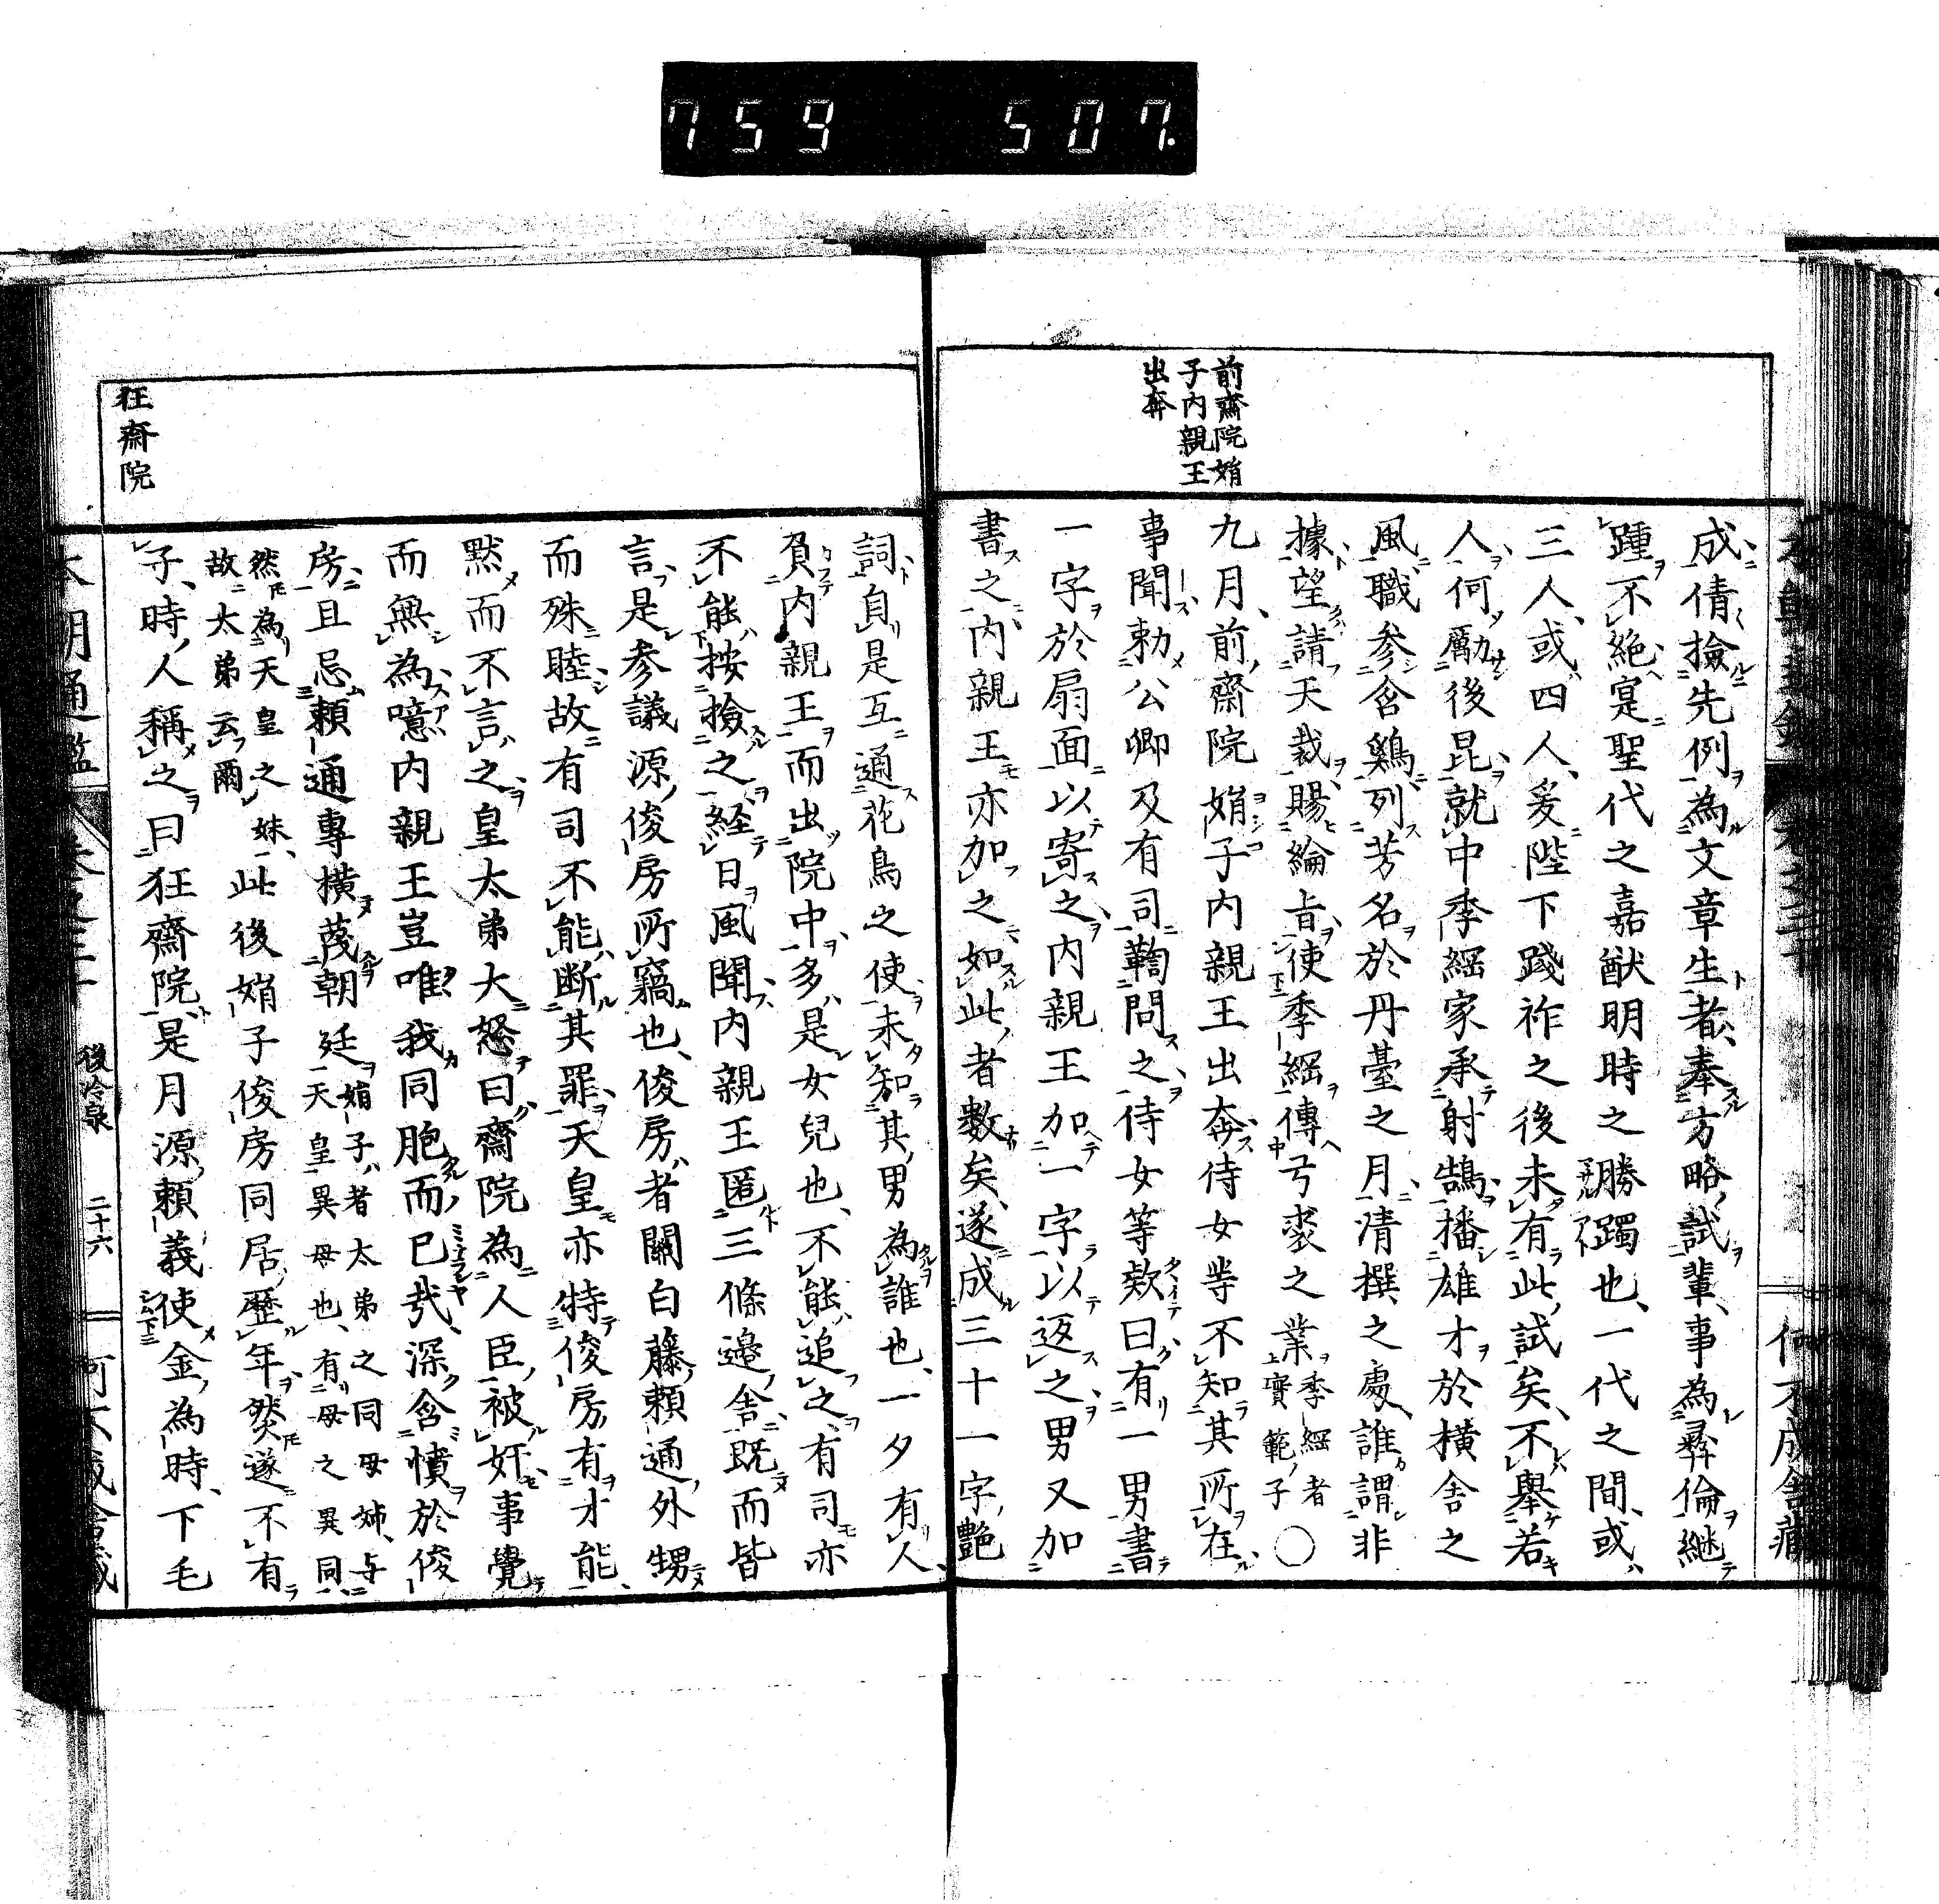 759 507.
前齋院娟
子内親王
出奔
成倩撿先例為文章生者奉方略試輩事為彝倫継
踵不絶寔聖代之嘉猷明時之勝躅也一代之間或
三人或四人爰陛下踐祚之後未有此試矣不舉若
人何勵後昆就中季綱家承射鵠播雄才於橫舍之
風職参含鷄列芳名於丹臺之月清撰之處誰謂非
據望請天裁賜綸旨使季綱傳弓裘之業季綱者
實範子○
九月前齋院娟子内親王出奔侍女等不知其所在
事聞勅公卿及有司鞫問之侍女等欵曰有一男書
一字於扇面以寄之内親王加一字以返之男又加
書之内親王亦加之如此者數矣遂成三十一字艶
詞自是互通花鳥之使未知其男為誰也一夕有人
負内親王而出院中多是女兒也不能追之有司亦
不能按撿之経日風聞内親王匿三條邉舎既而皆
言是参議源俊房所竊也俊房者關白藤頼通外甥
而殊睦故有司不能断其罪天皇亦特俊房有才能
黙而不言之皇太弟大怒曰齋院為人臣被奸事覺
而無為噫内親王豈唯我同胞而已哉深含憤於俊
房且忌頼通專橫蔑朝廷娟子者太弟之同母姉与
天皇異母也有母之異同
然為天皇之妹
故太弟云爾此後娟子俊房同居歴年然遂不有
子時人稱之曰狂齋院是月源頼義使金為時下毛
狂齋院
後冷泉
二十六